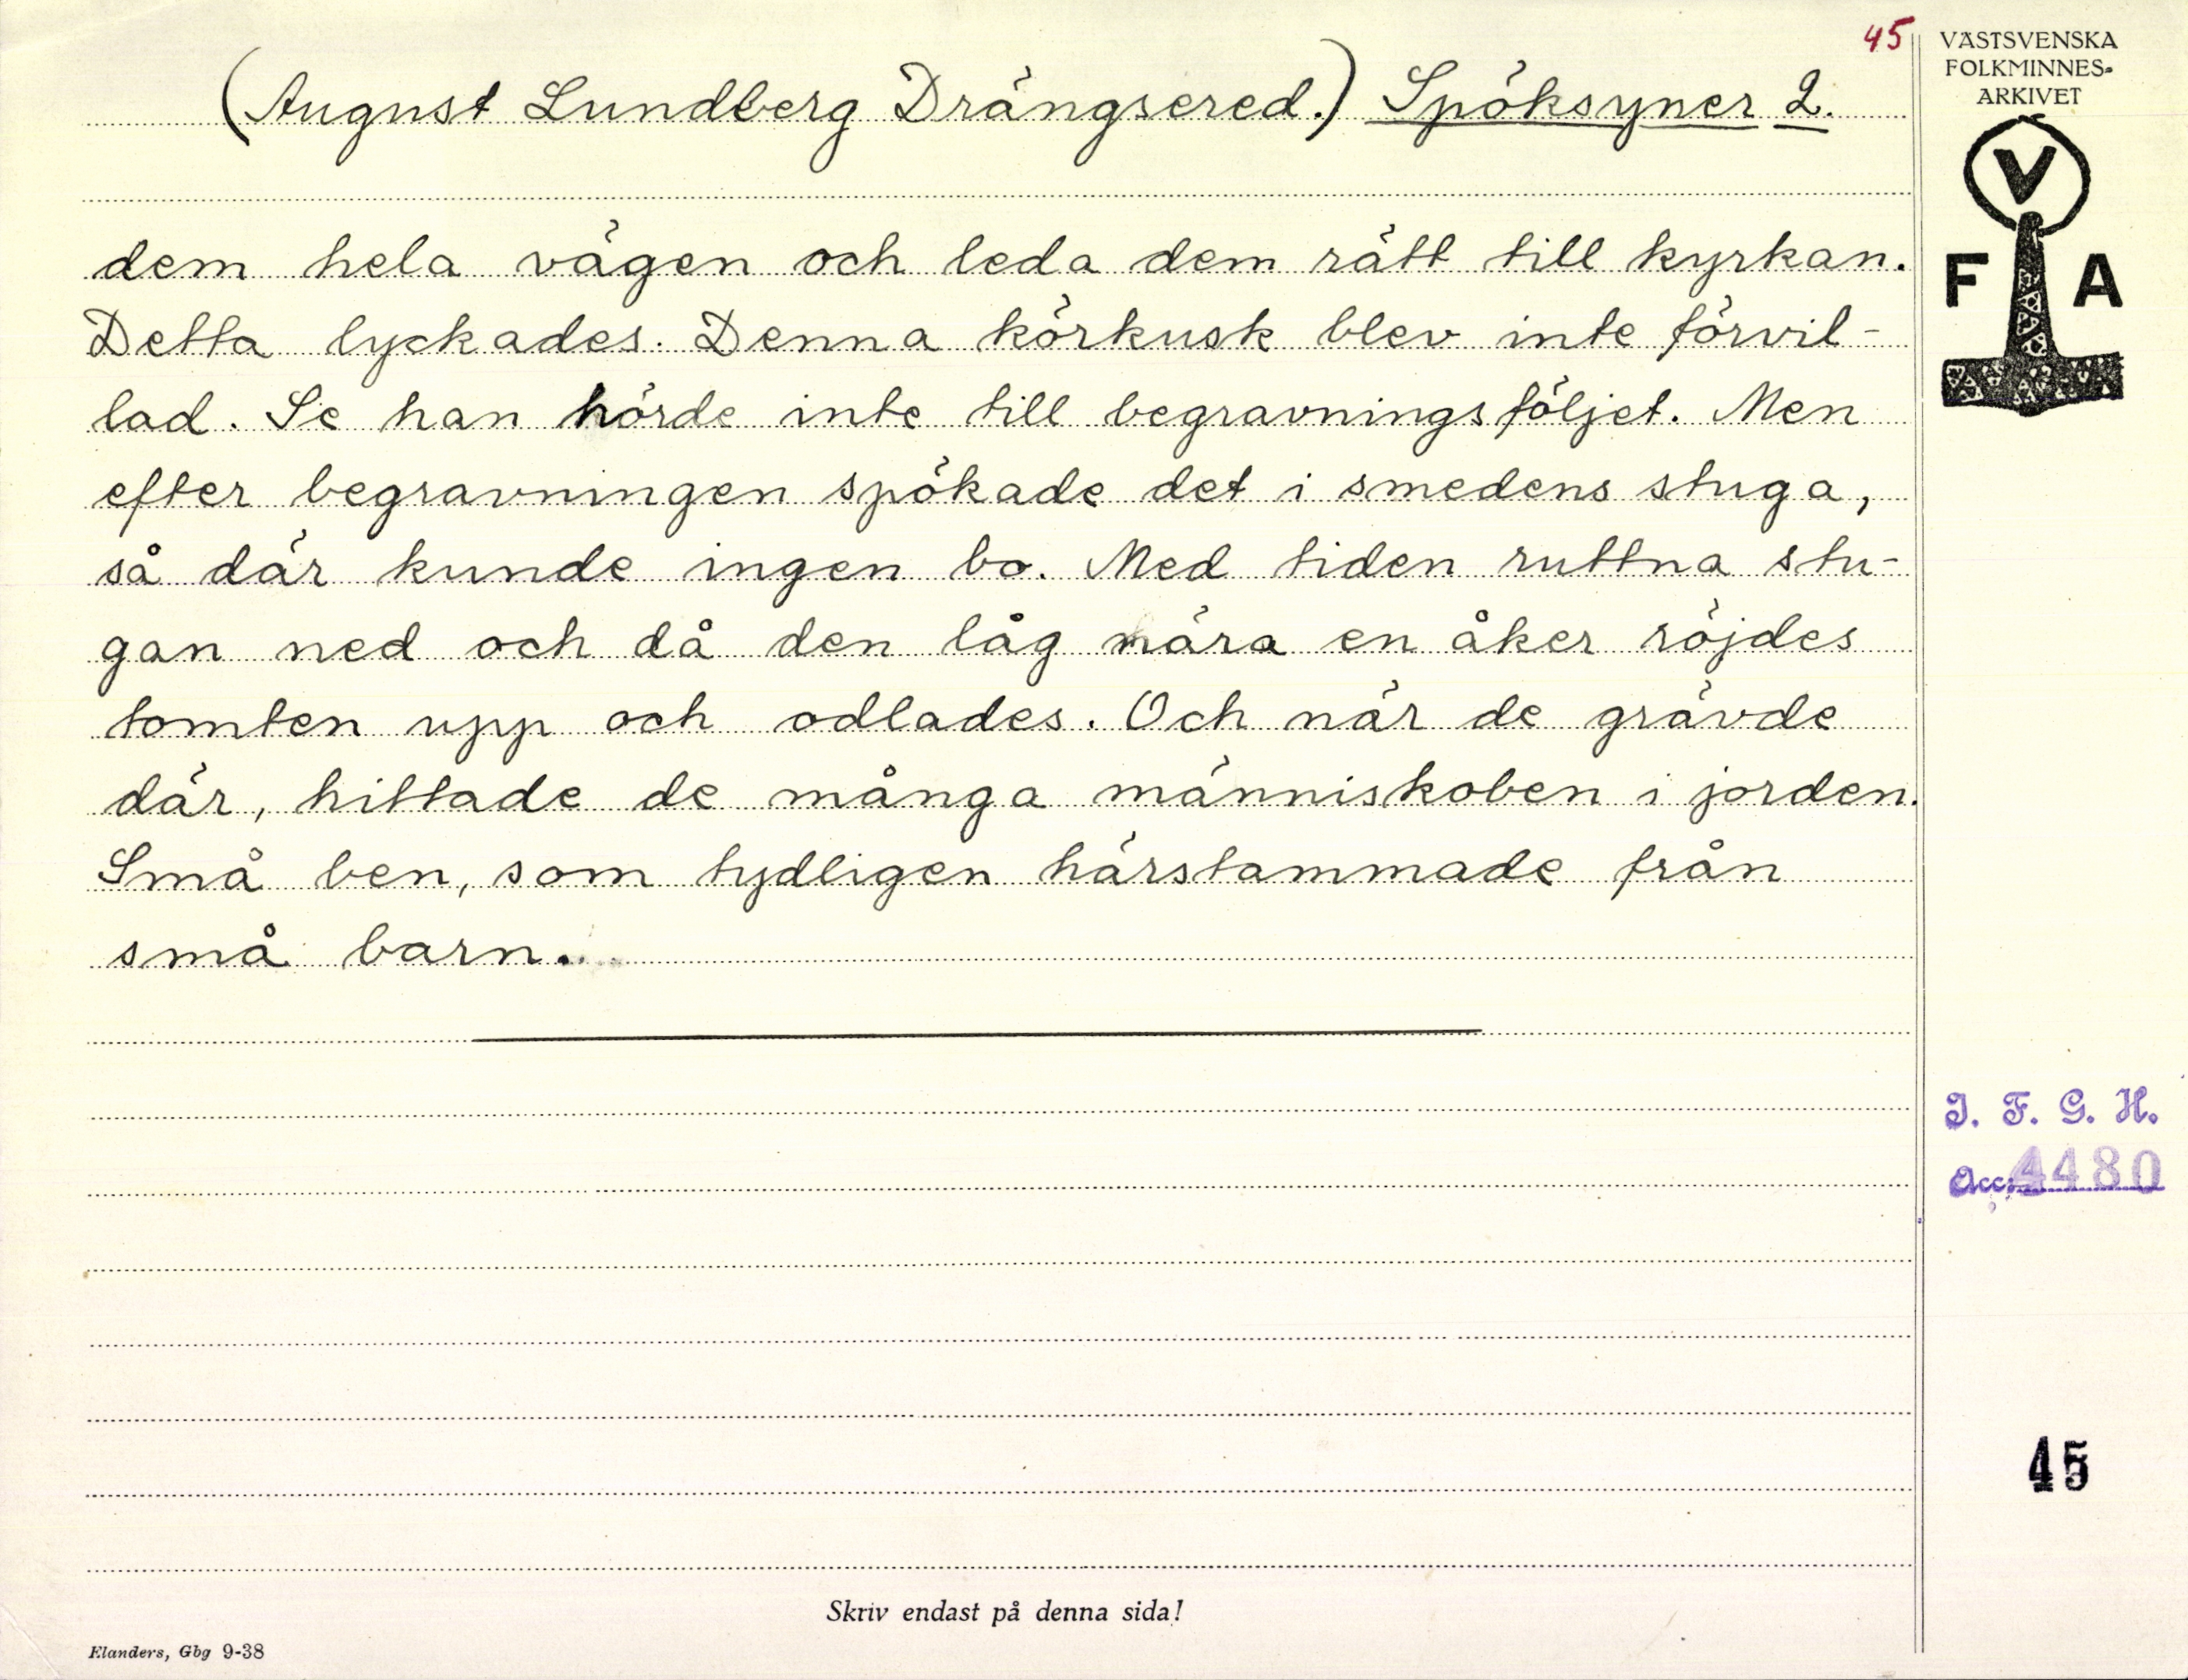 45
(August Lundberg Drängsered.) Spöksyner 2.
dem hela vägen och leda dem rätt till kyrkan.
Detta lyckades. Denna körkusk blev inte förvil-
lad. Se han hörde inte till begravningsföljet. Men
efter begravningen spökade det i smedens stuga,
så där kunde ingen bo. Med tiden ruttna stu-
gan ned och då den låg nära en åker röjdes
tomten upp och odlades. Och när de grävde
där, hittade de många människoben i jorden.
Små ben, som tydligen härstammade från
små barn.
VÄSTSVENSKA
FOLKMINNES-
ARKIVET
V
F A
I. F. G. H.
Acc. 4480
45
Skriv endast på denna sida!
Elanders, Gbg 9-38